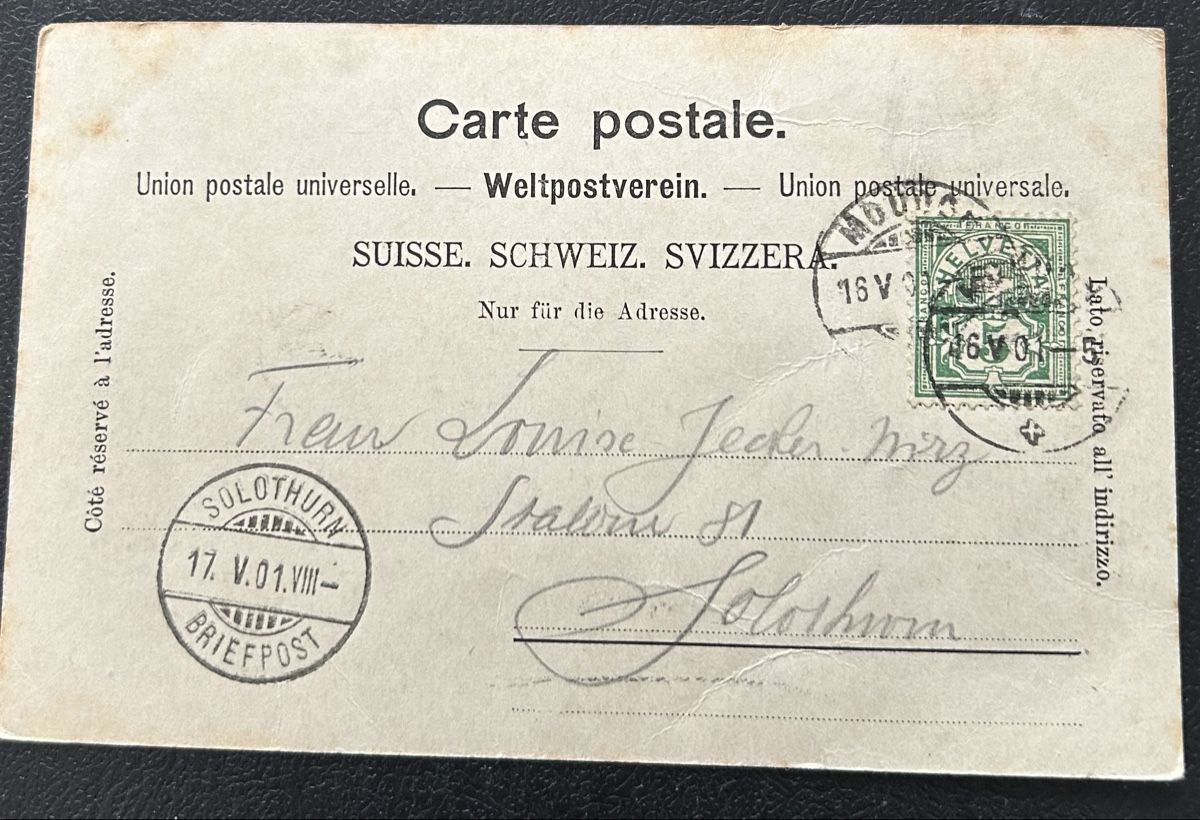 Carte postale.
Union postale universelle. — Weltpostverein. — Union postale universale.
SUISSE. SCHWEIZ. SVIZZERA.
Nur für die Adresse.
Côté réservé à l'adresse.
Lato riservato all' indirizzo.
FRANCO
HELVETIA
5
16 V 01
16 V 01 — 5
Frau Louise Jecker-Wirz
81
Solothurn
SOLOTHURN
17. V. 01. VIII —
BRIEFPOST